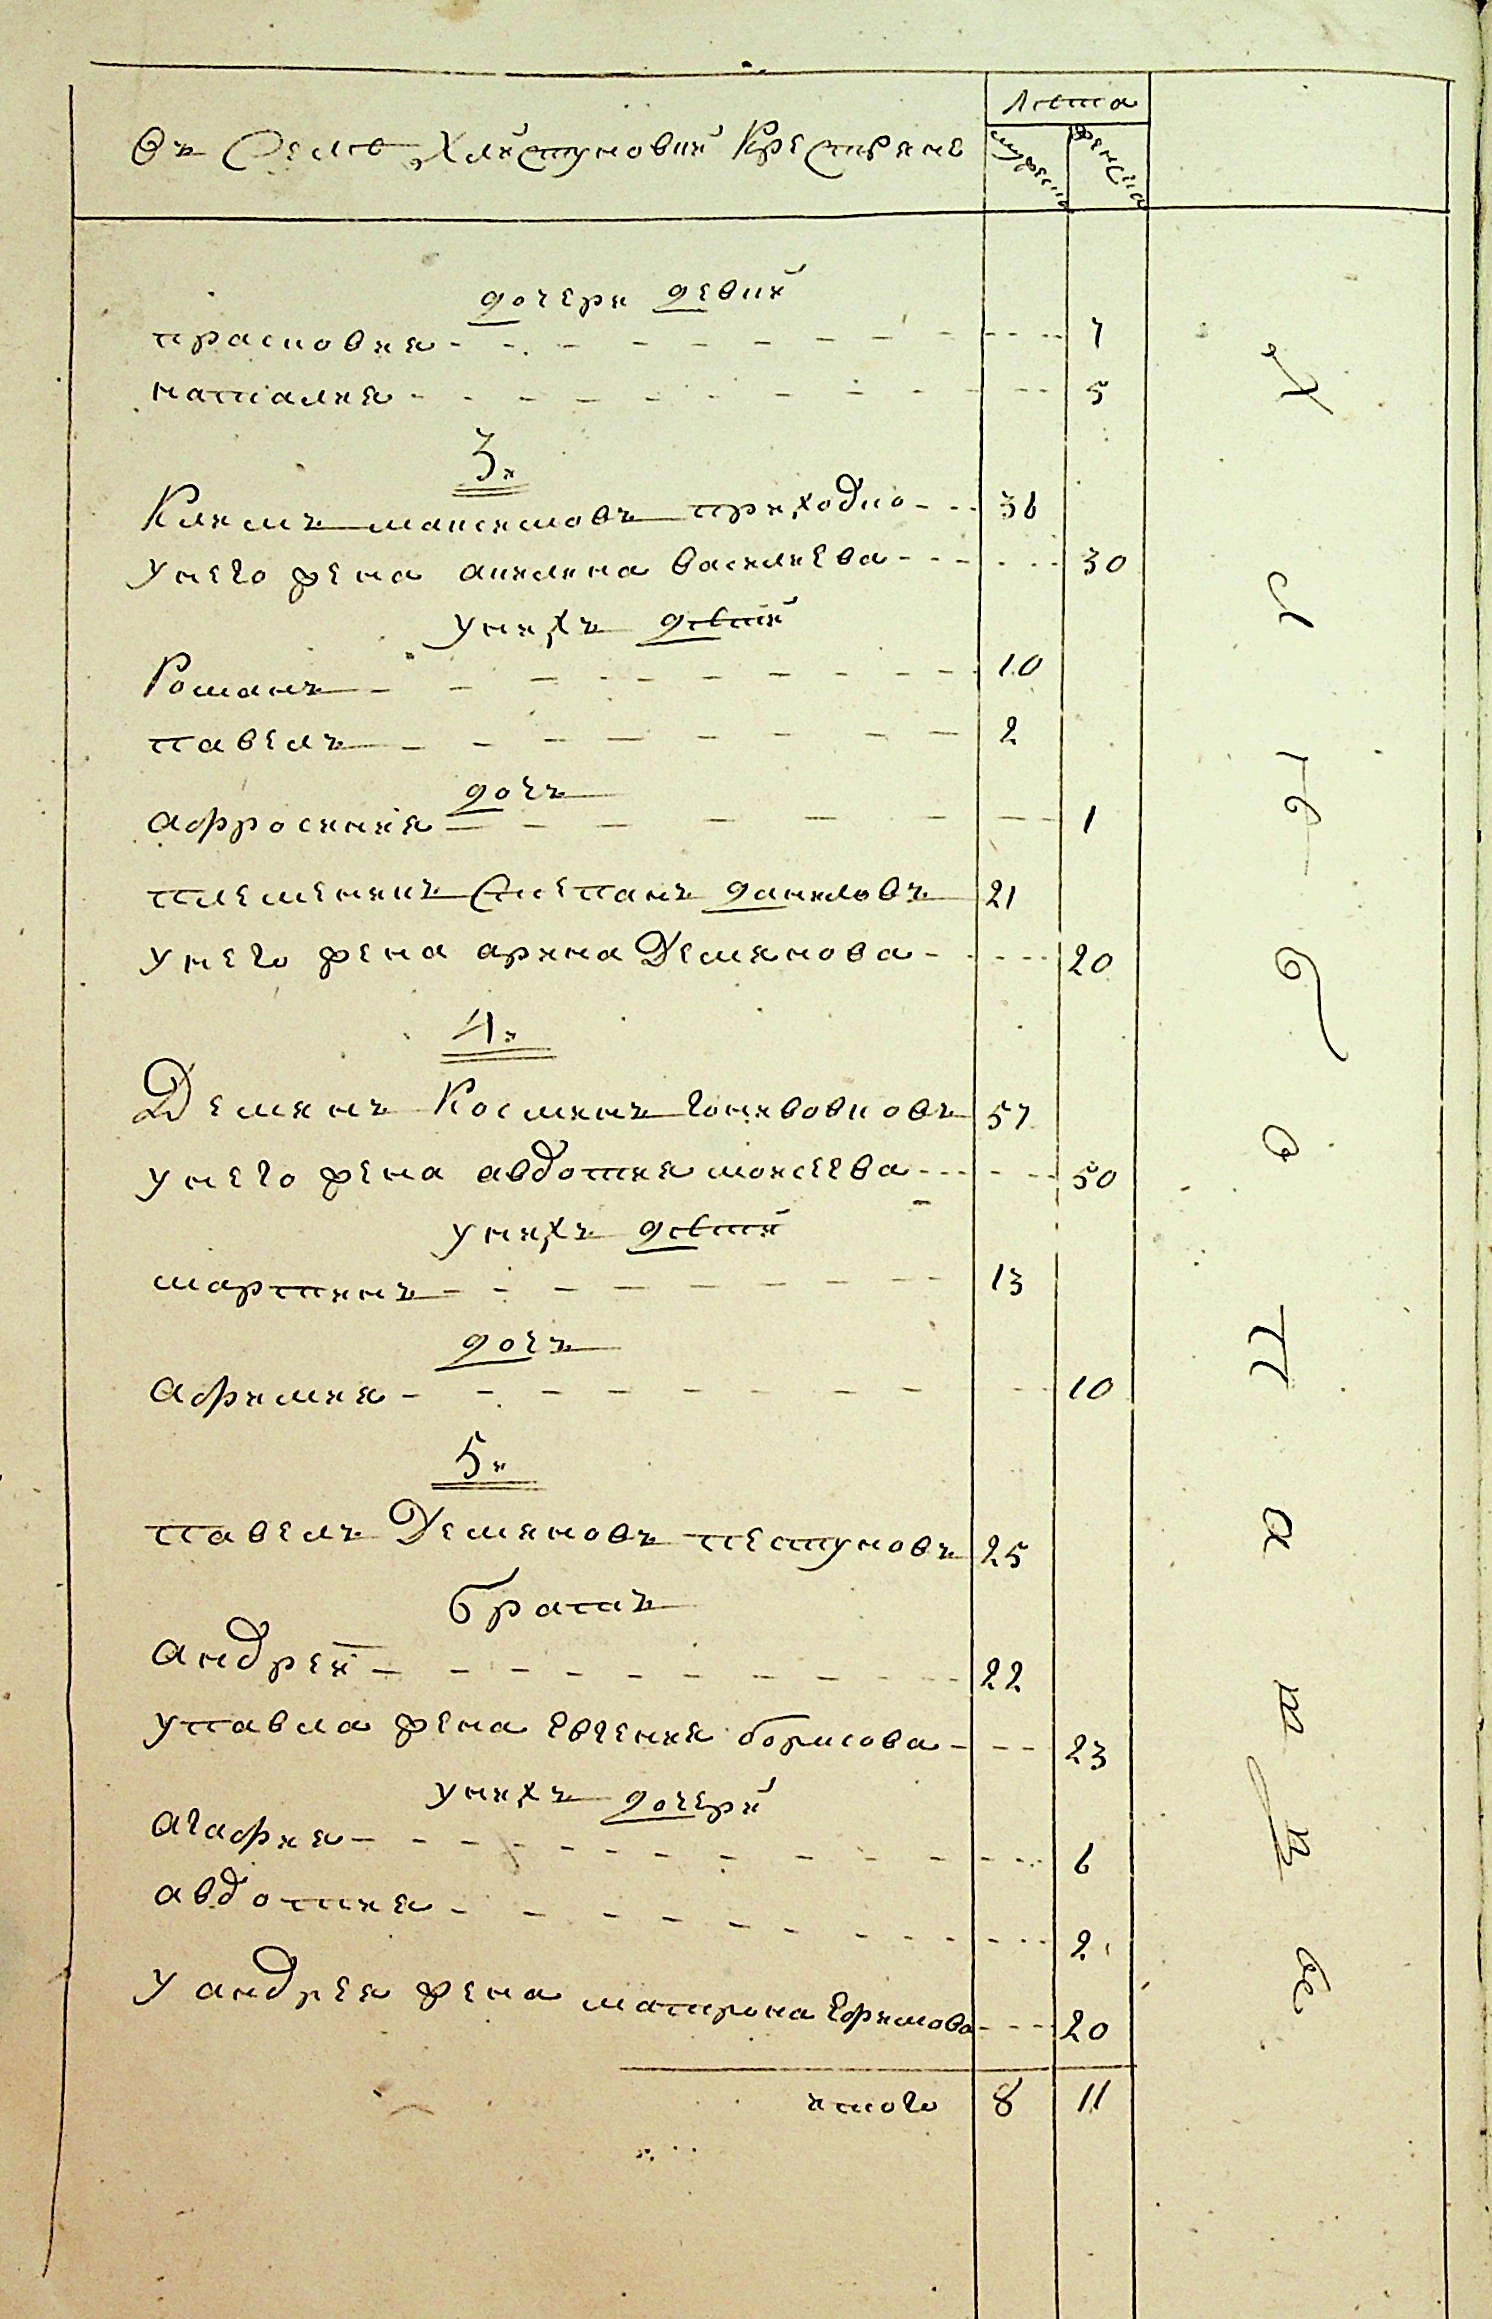 Въ Селѣ Хлистуновкѣ Крестьяне
Лета
мужеска
женска
дочери девки
прасковия 7
наталия 5
3.
Климъ максимовъ приходко 36
У него жена акилина василиева 30
У нихъ дѣти
Романъ 10
павелъ 2
дочь
афросиния 1
племеникъ Степанъ даниловъ 21
У него жена арина Демянова 20
4.
Демянъ Косминъ 57
У него жена авдотия моисеева 50
У нихъ дѣти
мартинъ 13
дочь
афимия 10
5.
павелъ Демяновъ пестуновъ 25
братъ
андрей 22
У павла жена евгения борисова 23
У нихъ дочери
агафия 6
авдотия 2
У андрея жена матрона Ефимова 20
итого 8 11